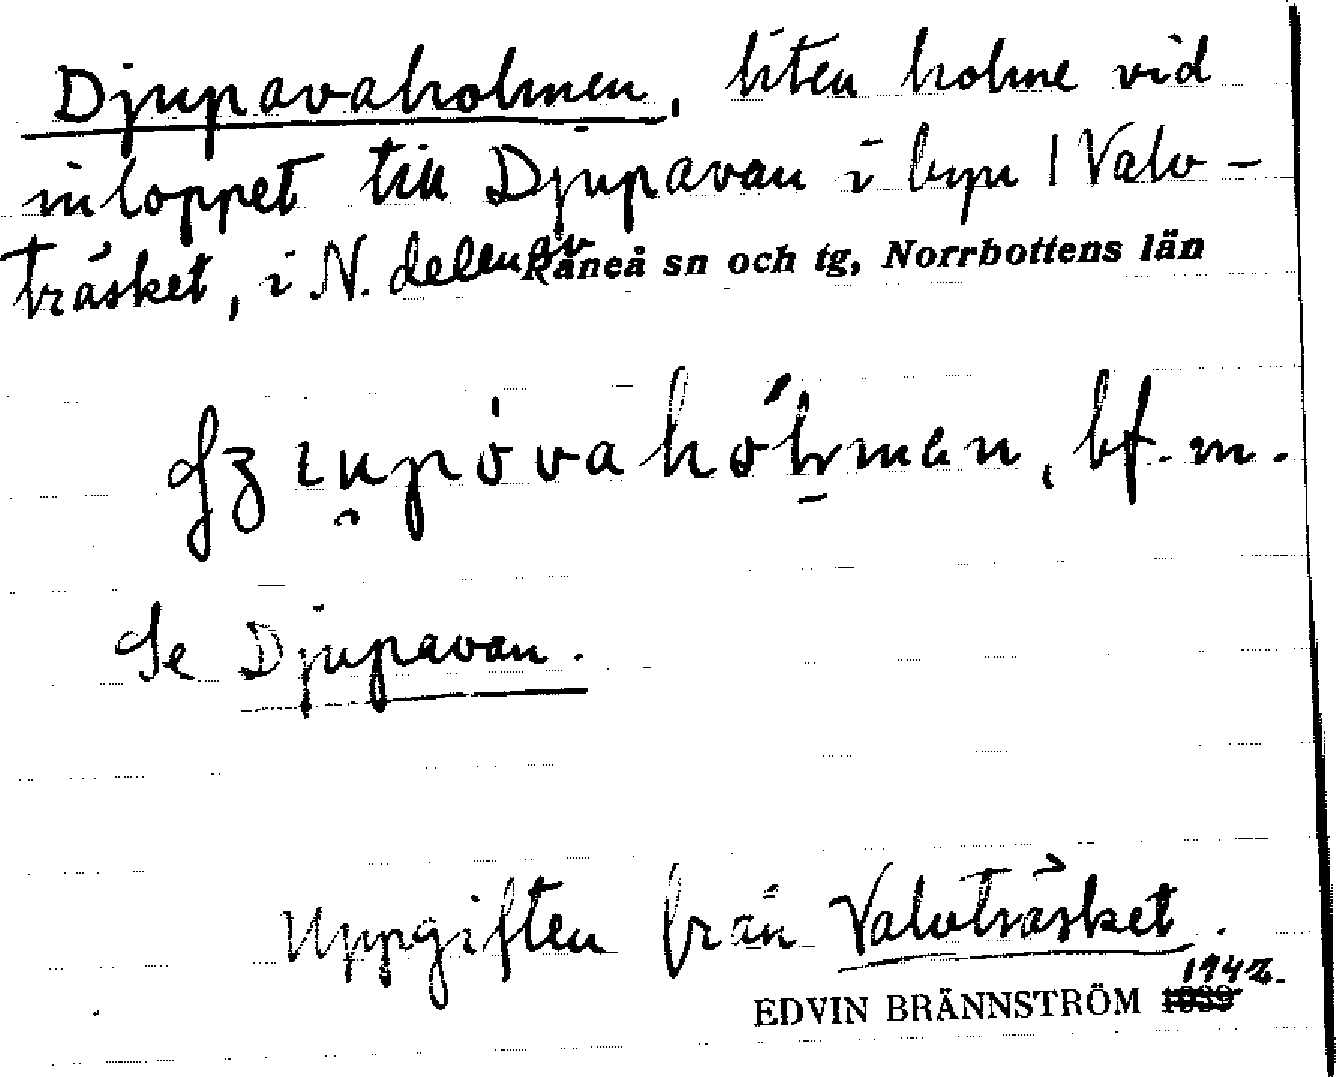 Djupavaholmen, liten holme vid
inloppet till Djupavan i byn | Valv-
träsket, i N. delen av Råneå sn och tg, Norrbottens län
bf. m.
Se Djupavan.
Uppgiften från Valvträsket.
1942.
EDVIN BRÄNNSTRÖM 1939